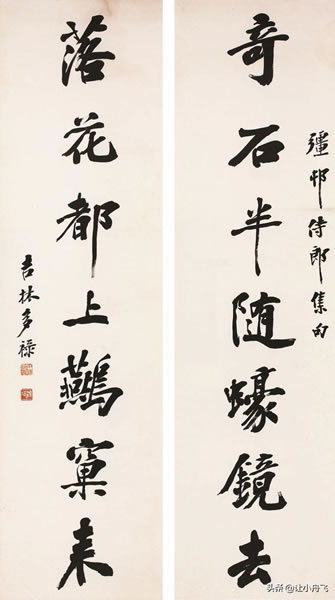 彊邨侍郎集句
奇石半随蠔鏡去
落花都上鷰窠来
吉林多禄
头条 @让小丹飞